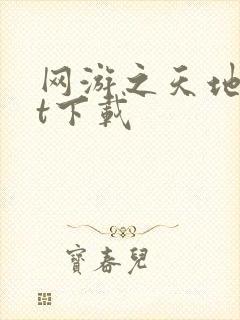 网游之天地
t下载
寶春兒